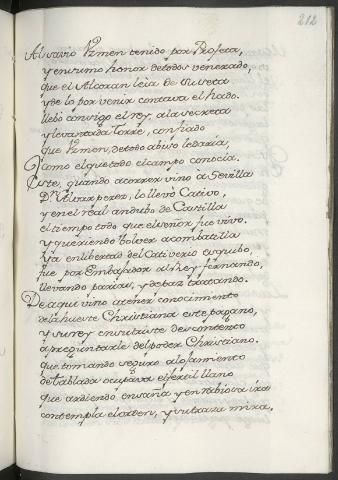 212
Al savio Ysmen tenido por Profeta,
y en sumo honor de todos venerado,
que el Alcoran leia de su seta
y de lo por venir contava el hado.
llebò consigo el rey, a la secreta
y levantada torre, confiado
que Ysmen, de todo abiso le daria,
Como el que todo el campo conocia.
Este, quando a correr vino a Sevilla
Dn Alvar perez, lo llevò Cativo,
y en el real anduvo de Castilla
el tiempo todo que el señor fue vivo.
y queriendo bolver a combatilla
ya en libertad del Cativerio esquibo
fue por Embajador al rey fernando,
llevando parias, y de paz tratando.
De aqui vino a tener conocimiento
de la hueste Christiana este pagano,
y su rey en su triste descontento
à preguntarle del poder Christiano.
que tomando seguro alojamiento
de tablada ocupava el fertil llano
que ardiendo en saña y en rabiosa ira
contempla el orden, y su traza mira,